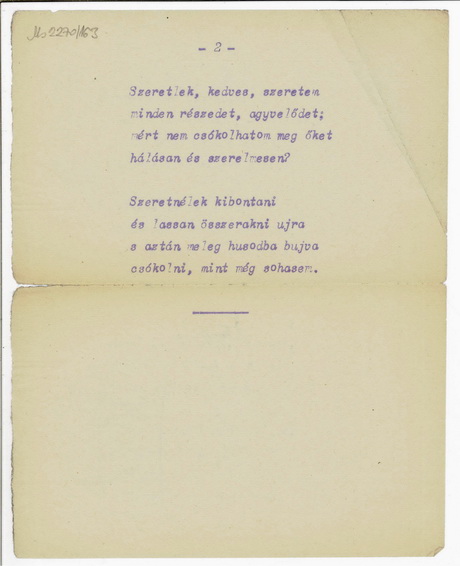 Ms 2270/163
- 2 -
Szeretlek, kedves, szeretem
minden részedet, agyvelődet;
mért nem csókolhatom meg őket
hálásan és szerelmesen?
Szeretnélek kibontani
és lassan összerakni ujra
s aztán meleg husodba bujva
csókolni, mint még sohasem.